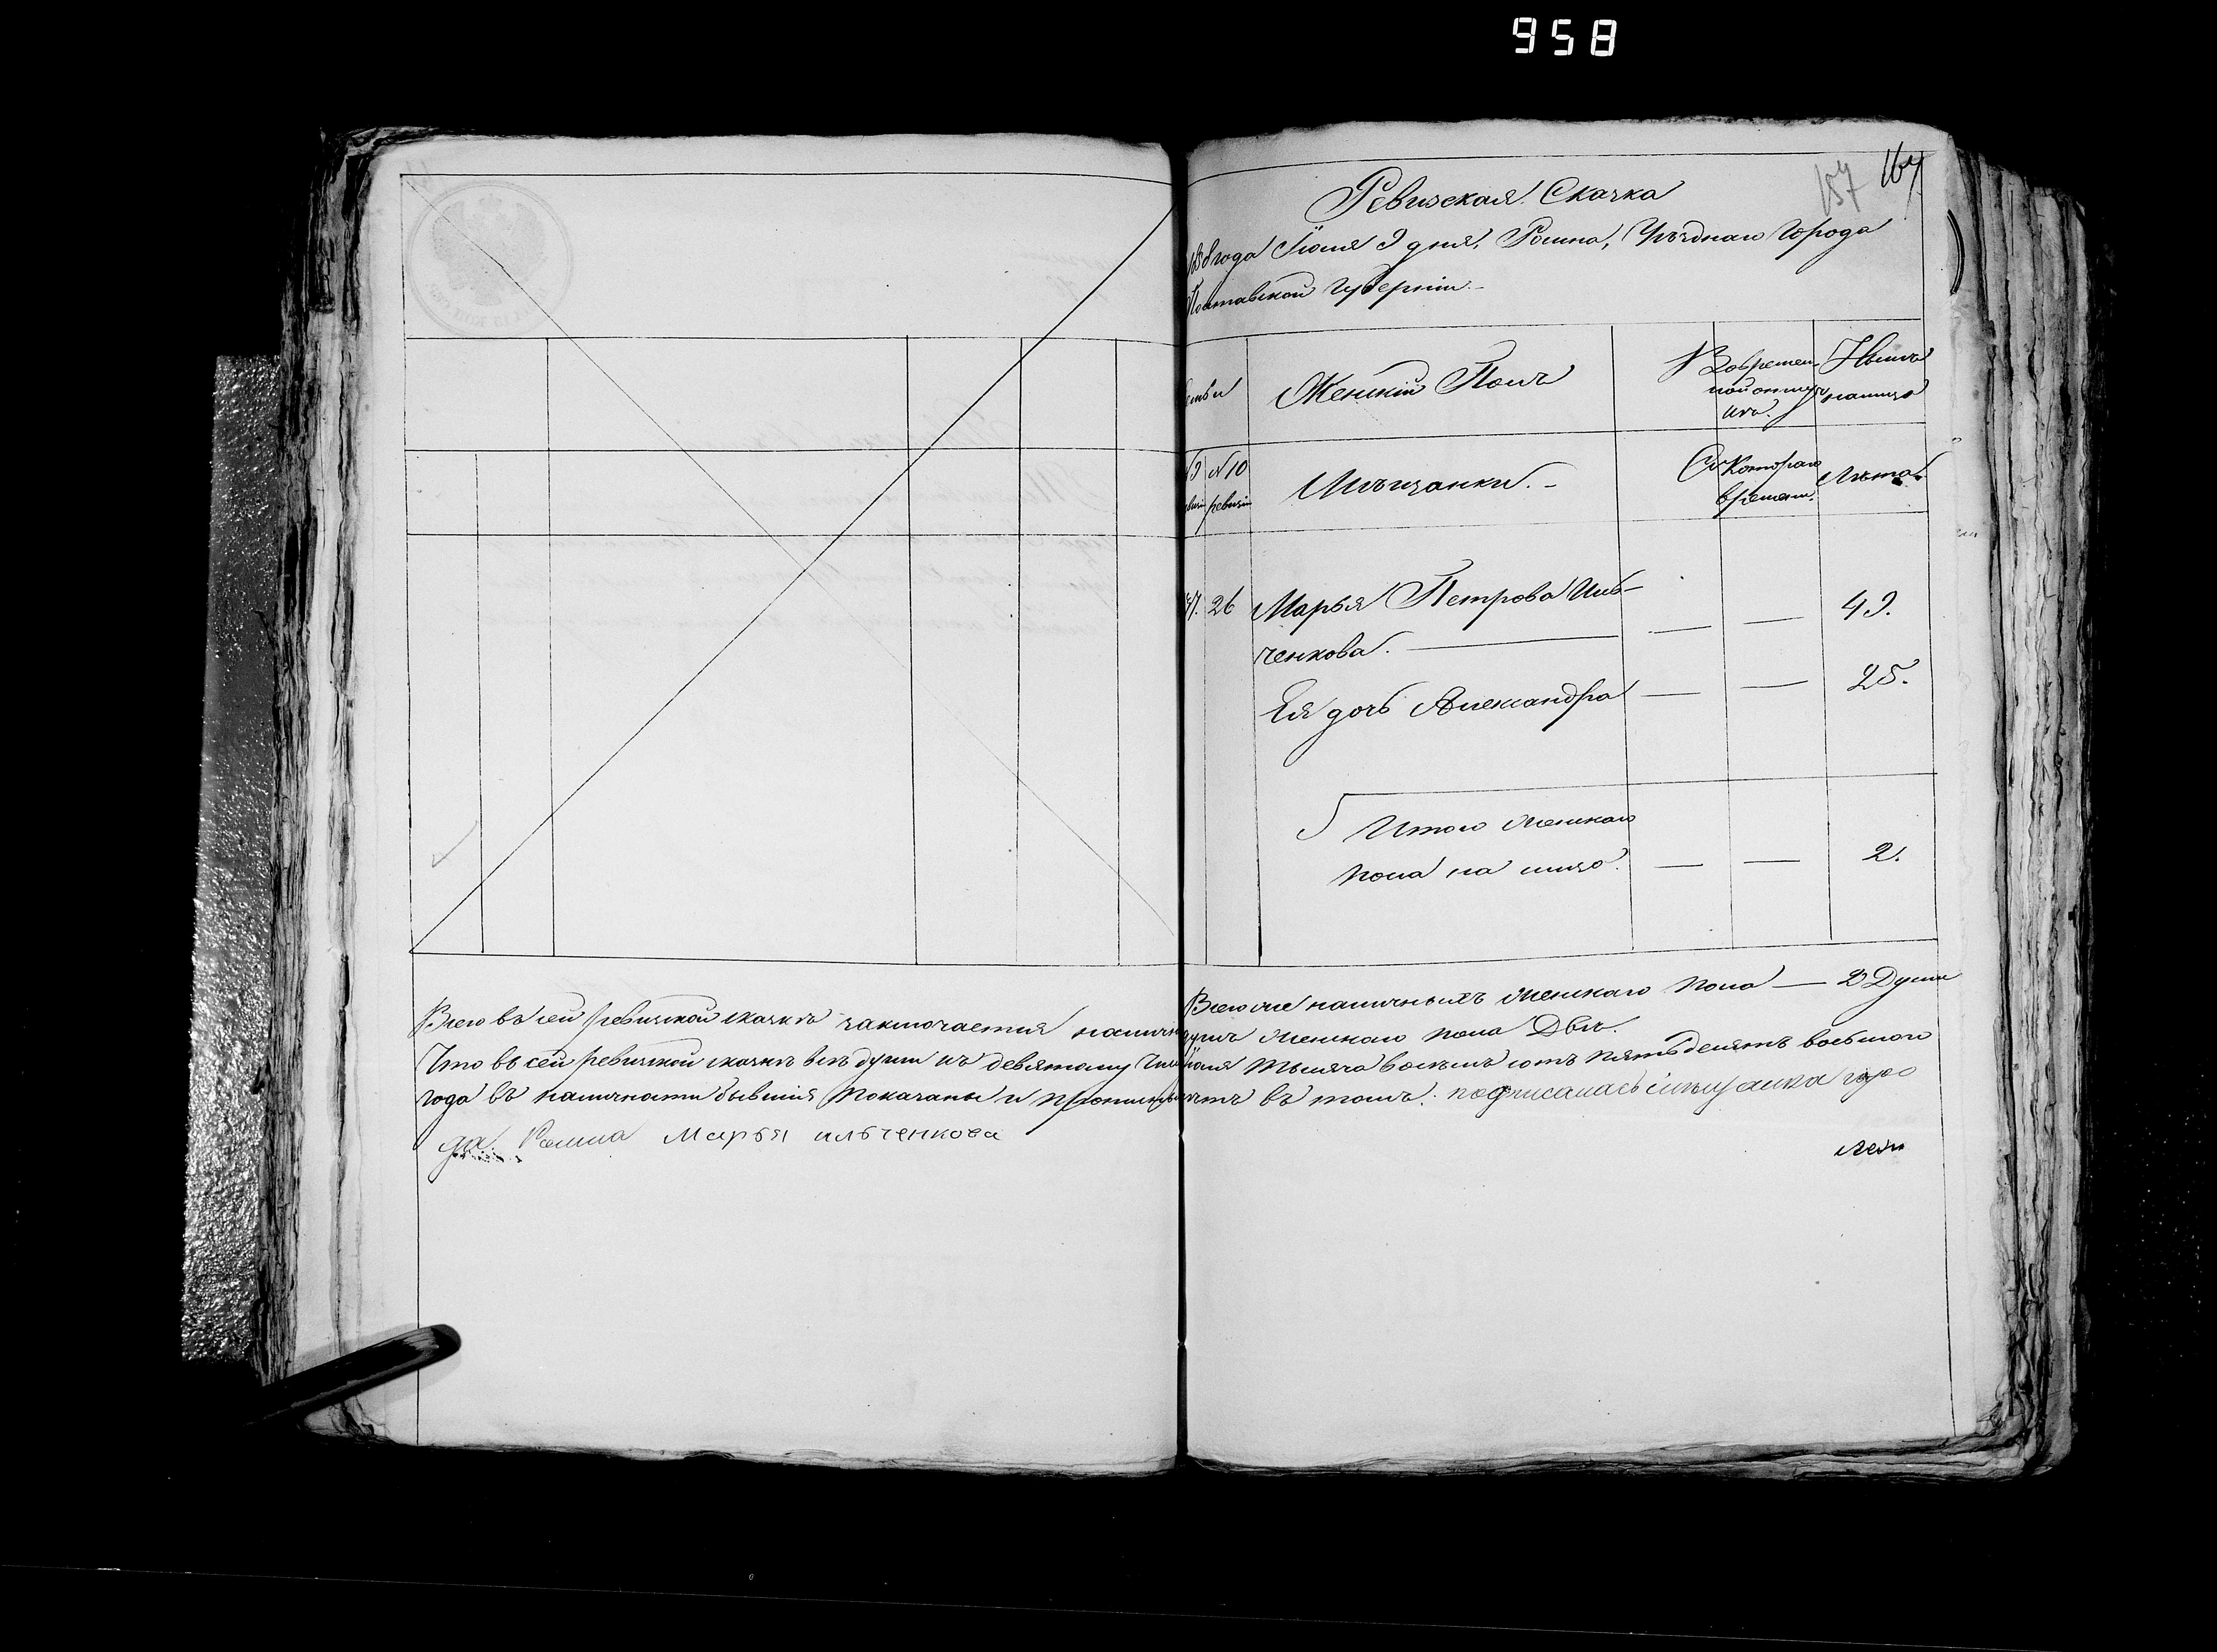 958
157 167
Ревизская Сказка
1858 года Июля 9 дня, Ромна, Уѣзднаго Города
Полтавской Губерніи.-
Семьи
Женскій Полъ
Вовремен-
ной отлуч-
кѣ.
Нынѣ
налицо
№ 9 № 10
ревизіи ревизіи
Мѣщанки.-
Съ Котораго
времени.
Лѣта.
26 Марья Петрова Иль-
ченкова. — — — 49.
Ея дочь Александра — — 25.
Итого женскаго
пола на лицо. — — 2.
Всего въ сей ревизской сказкѣ заключается налич
Всего же наличныхъ женскаго пола — 2 Души
душъ женскаго пола Двѣ.
Что въ сей ревизской сказкѣ всѣ души къ девятому Числу Июля тысяча восемь сотъ пятьдесятъ восьмого
года въ наличности бывшія показаны и прописныхъ нѣтъ въ томъ. подписалась мѣщанка горо
да Ромна Марья ильченкова